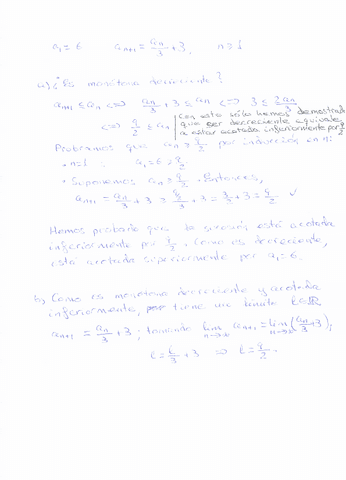 a₁ = 6   aₙ₊₁ = aₙ/3 + 3,   n ≥ 1
a) ¿Es monótona decreciente?
aₙ₊₁ ≤ aₙ <=> aₙ/3 + 3 ≤ aₙ <=> 3 ≤ 2aₙ/3
<=> 9/2 ≤ aₙ
con esto sólo hemos demostrado
que ser decreciente equivale
a estar acotada inferiormente por 9/2
Probaremos que aₙ ≥ 9/2 por inducción en n:
• n=1   a₁ = 6 ≥ 9/2.
• Suponemos aₙ ≥ 9/2. Entonces,
aₙ₊₁ = aₙ/3 + 3 ≥ 9/2/3 + 3 = 3/2 + 3 = 9/2. ✓
Hemos probado que la sucesión está acotada
inferiormente por 9/2. Como es decreciente,
está acotada superiormente por a₁ = 6.
b) Como es monótona decreciente y acotada
inferiormente, tiene un límite l∈ℝ
aₙ₊₁ = aₙ/3 + 3; tomando lim n→∞ aₙ₊₁ = lim n→∞ (aₙ/3 + 3),
l = l/3 + 3 => l = 9/2.